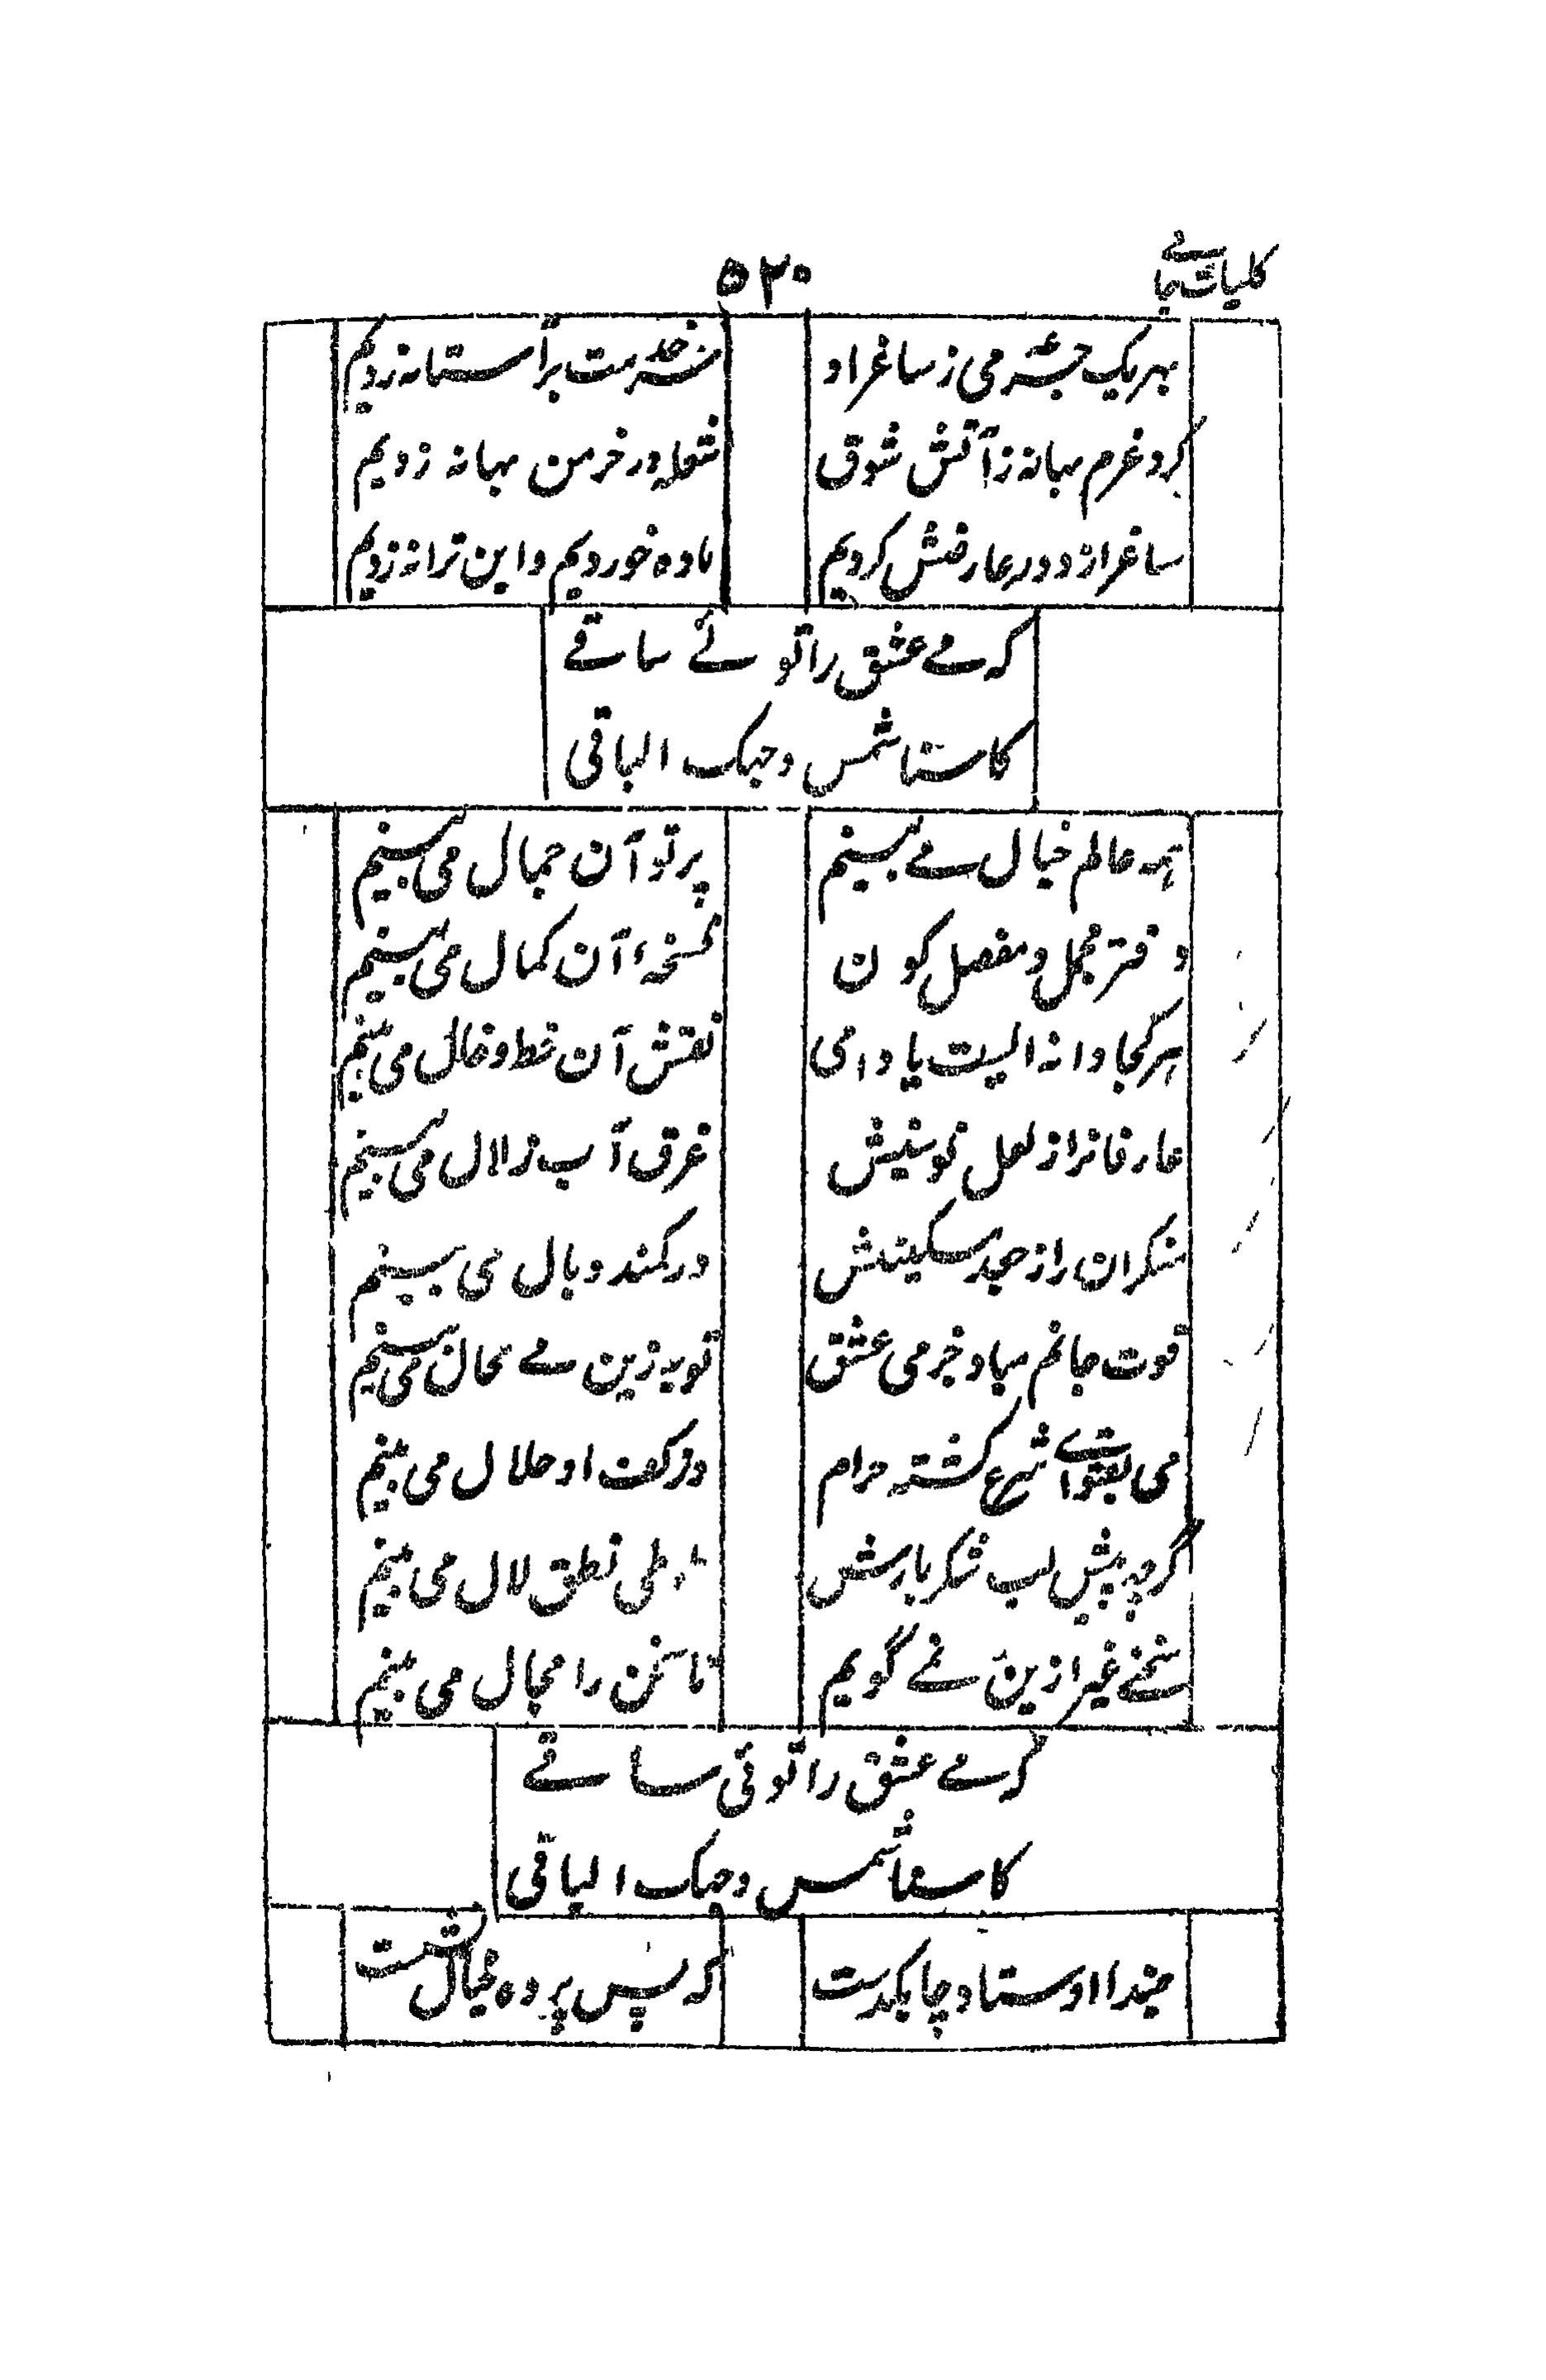 کلیات جامے
۵۲۰
بهر یک جرعهٔ می ز ساغر او
خدمت بر آستانه زدیم
کرد غرم بهانه ز آتش شوق
شعله در خرمن بهانه زدیم
ساغر از دور عارضش کردیم
باده خوردیم و این ترانه زدیم
که مے عشق را توئے ساقے
کاسنا شمس وجهک الباقی
همه عالم خیال مے بینم
پرتو آن جمال می بینم
دفتر مجمل و مفصل کون
نسخهٔ آن کمال می بینم
هر کجا دانه الیست یا دامی
نقش آن خط و خال می بینم
عارفانرا ز لعل نوشینش
غرق آب زلال می بینم
منکران را ز جعد مسکینش
در کمند وبال می بینم
قوت جانم مباد جز می عشق
توبه زین مے محال می بینم
می بفتوائے شرع گشته حرام
در کف او حلال می بینم
گرچه پیش لب شکر بارش
طوطی نطق لال می بینم
سخنے غیر ازین نمے گویم
تا سخن را مجال می بینم
که مے عشق را توئی ساقے
کاسنا شمس وجهک الباقی
حبذا اوستاد چابکدست
که پس پرده خیال نشست